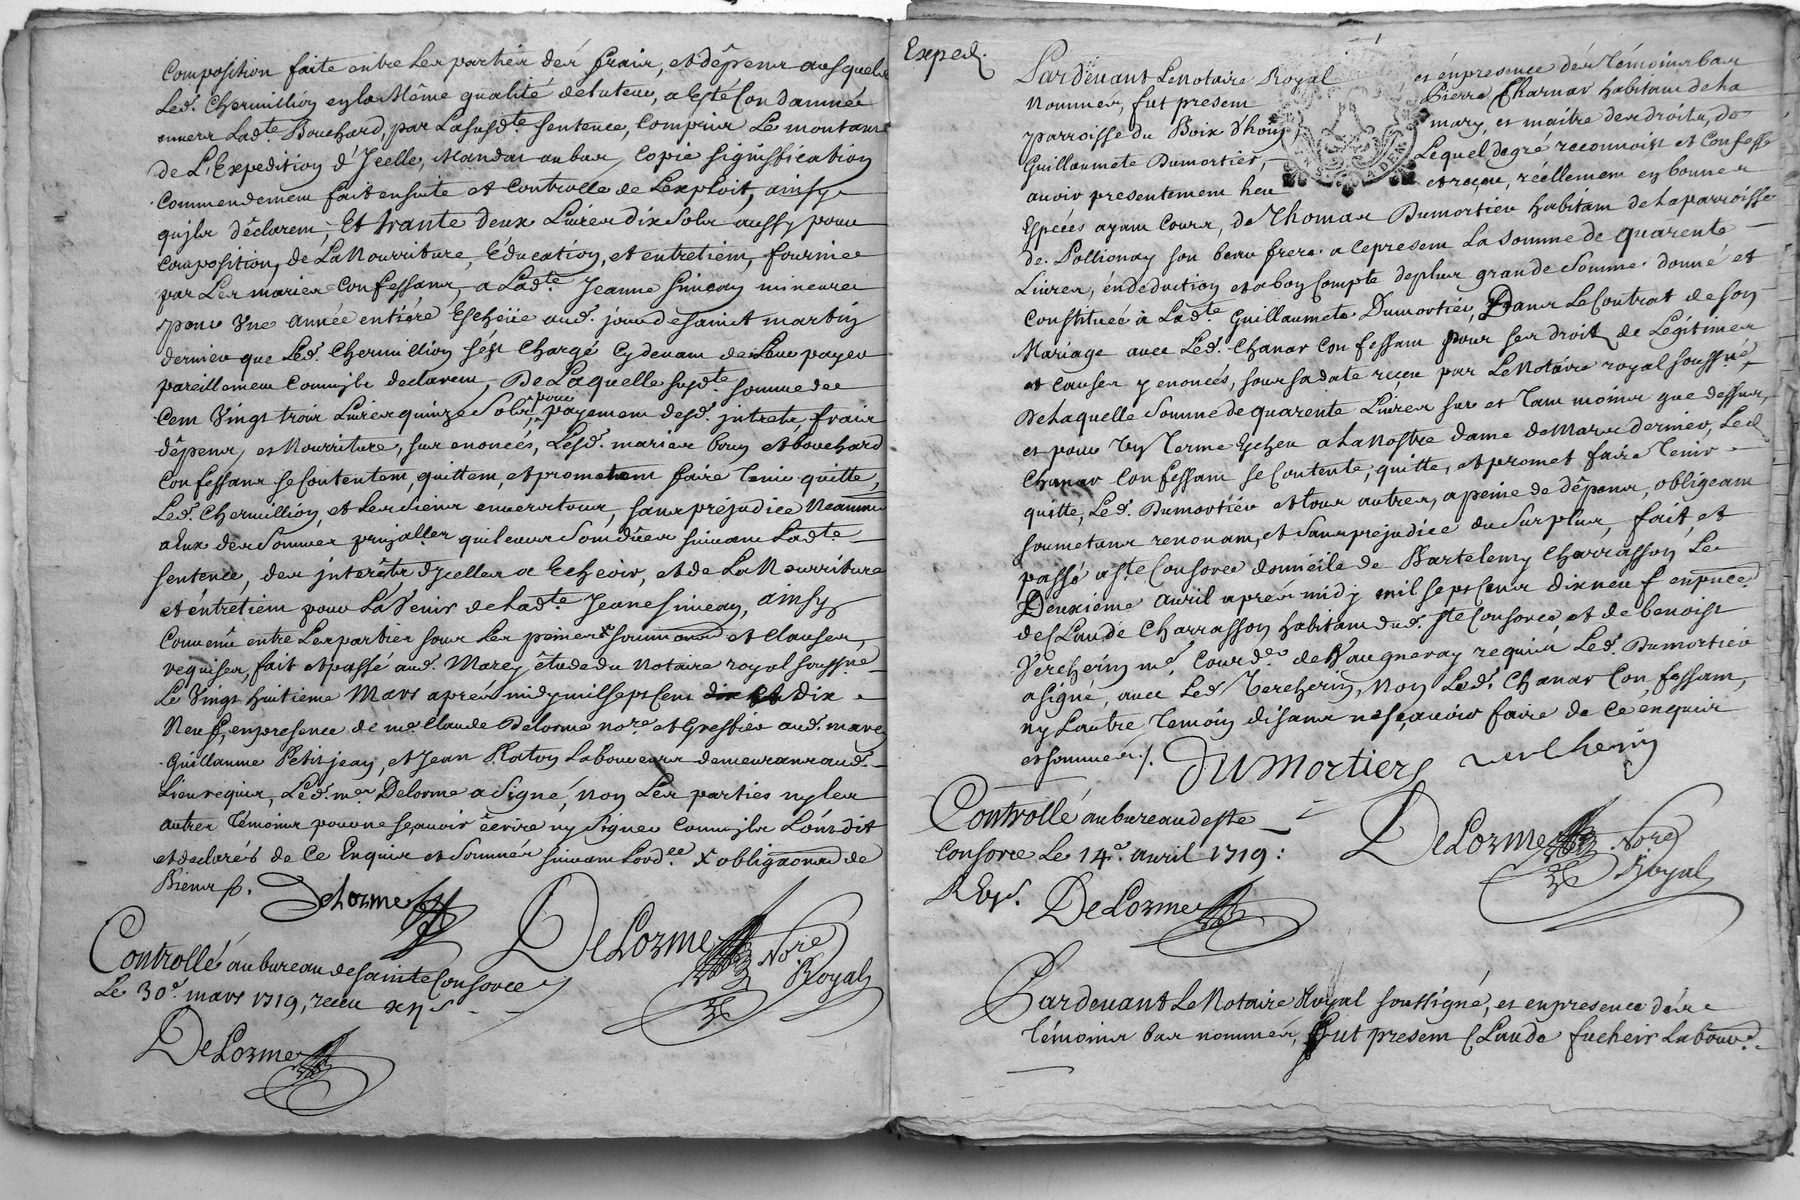 Composition faite entre Les parties des frais, et dépens ausquels
Led. Chermillion en la Même qualité de tuteur, a Esté Condamnée
envers Ladte Bouchard, par La susdte sentence, Compris Le montant
de L'Expedition d'Icelle, Mandat au bas, Copie signiffication
Commendement fait ensuite et Controlle de L'exploit, ainsy
qu'ils déclarent, Et trante deux Livres dix Sols aussy pour
Composition, de La Nourriture, Education, et entretient, fournies
par Les mariés Confessans, a Ladte Jeanne Simean mineure
pour Une année entiére Escheüe aud. jour de saint martin
dernier que Led. Chermillion s'est Chargé Cy devant de Leur payer
pareillement Comm'ils declarent, De Laquelle susdte somme de
Cent Vingt trois Livres quinze Sols, pour payement desd. intrets, frais
dépens, et Nourriture, sus enoncés, Lesd. mariés Brun et Bouchard
Confessans se Contentent quittent, et promettent faire Tenir quitte,
Led. Chermillion, et Les siens envers tous, sans préjudice Neanmt
a Eux des Sommes prinsalles qui leurs Sont dües suivant Ladte
sentence, des interêts d'Icelles a Echeoir, et de La Nourriture
et éntretient pour L'avenir de Ladte Jeane Simean, ainsy
Convenû entre Les parties sous Les peines x soumions et Clauses,
requises, fait et passé aud. Marcy étude du Notaire royal soussné
Le Vingt huitieme Mars aprés midy mil sept Cent dix
Neuf, en presence de me Claude Delorme nore et Greffier aud. marcy
Guillaume Petit jean, et Jean Raton Laboureurs demeurans aud.
Lieu requis, Led. me Delorme a Signé, Non Les parties ny les
autres témoins pour ne sçavoir écrire ny Signer Comm'ils L'ont dit
et declarés de Ce Enquis et Sommés suivant Lordce x obligaons de
Biens p.
Delorme
DeLorme Nore Royal
Controllé au bureau de sainte Consorce
Le 30e mars 1719, receu
DeLorme
Exped.
Pardevant Le Notaire Royal et en presence des Témoins bas
Nommés, fut present Pierre Charnav habitant de la
parroisse du Bois d'hoin mary, et maitre des droits, de
Guillaumete Dumortier, Lequel de gré reconnoist et Confesse
avoir presentement héu et reçeu, réellement en bonnes
Espéces ayant Cours, de Thomas Dumortier habitant de la parroisse
de Pollionay son beau frere a ce present La somme de quarente
Livres, en deduction et a bon Compte de plus grande Somme donné et
Constituée à Ladte Guillaumete Dumortier, Dans Le Contrat de son
Mariage avec Led. Chanav Confessant pour ses droits de Légitimes
et Causes y enoncés, sous sa date reçeu par Le Notaire royal soussné,
De Laquelle Somme de quarente Livres sus et Tant moins que dessus,
et pour Un Terme Escheu a La Nostre dame de Mars dernier, Led.
Chanav Confessant se Contente, quitte, et promet faire Tenir
quitte, Led. Dumortier et tous autres, a peine de dépens, obligeant
soumetant renonant, et Sans préjudice du Surplus, fait, et
passé a Ste Consorce domicile de Bartelemy Charrasson Le
Deuxième avril aprés midy mil sept Cent dix neuf en pnce
de Claude Charrasson habitant dud. Ste Consorce et de benoist
Vercherin me Courdr de Vaugneray requis Led. Dumortier
a signé, avec Led Vercherin, Non Led. Chanav Confessant,
ny Lautre Temoin disant ne sçavoir faire de Ce enquis
et sommés ⁒.
DUMORTIER verCherin
Controllé au bureau de Ste
Consorce Le 14e avril 1719:
DeLorme Nore Royal
DeLorme
Pardevant Le Notaire Royal soussigné, et en presence des
Témoins bas nommés, fut present Claude Laboure.